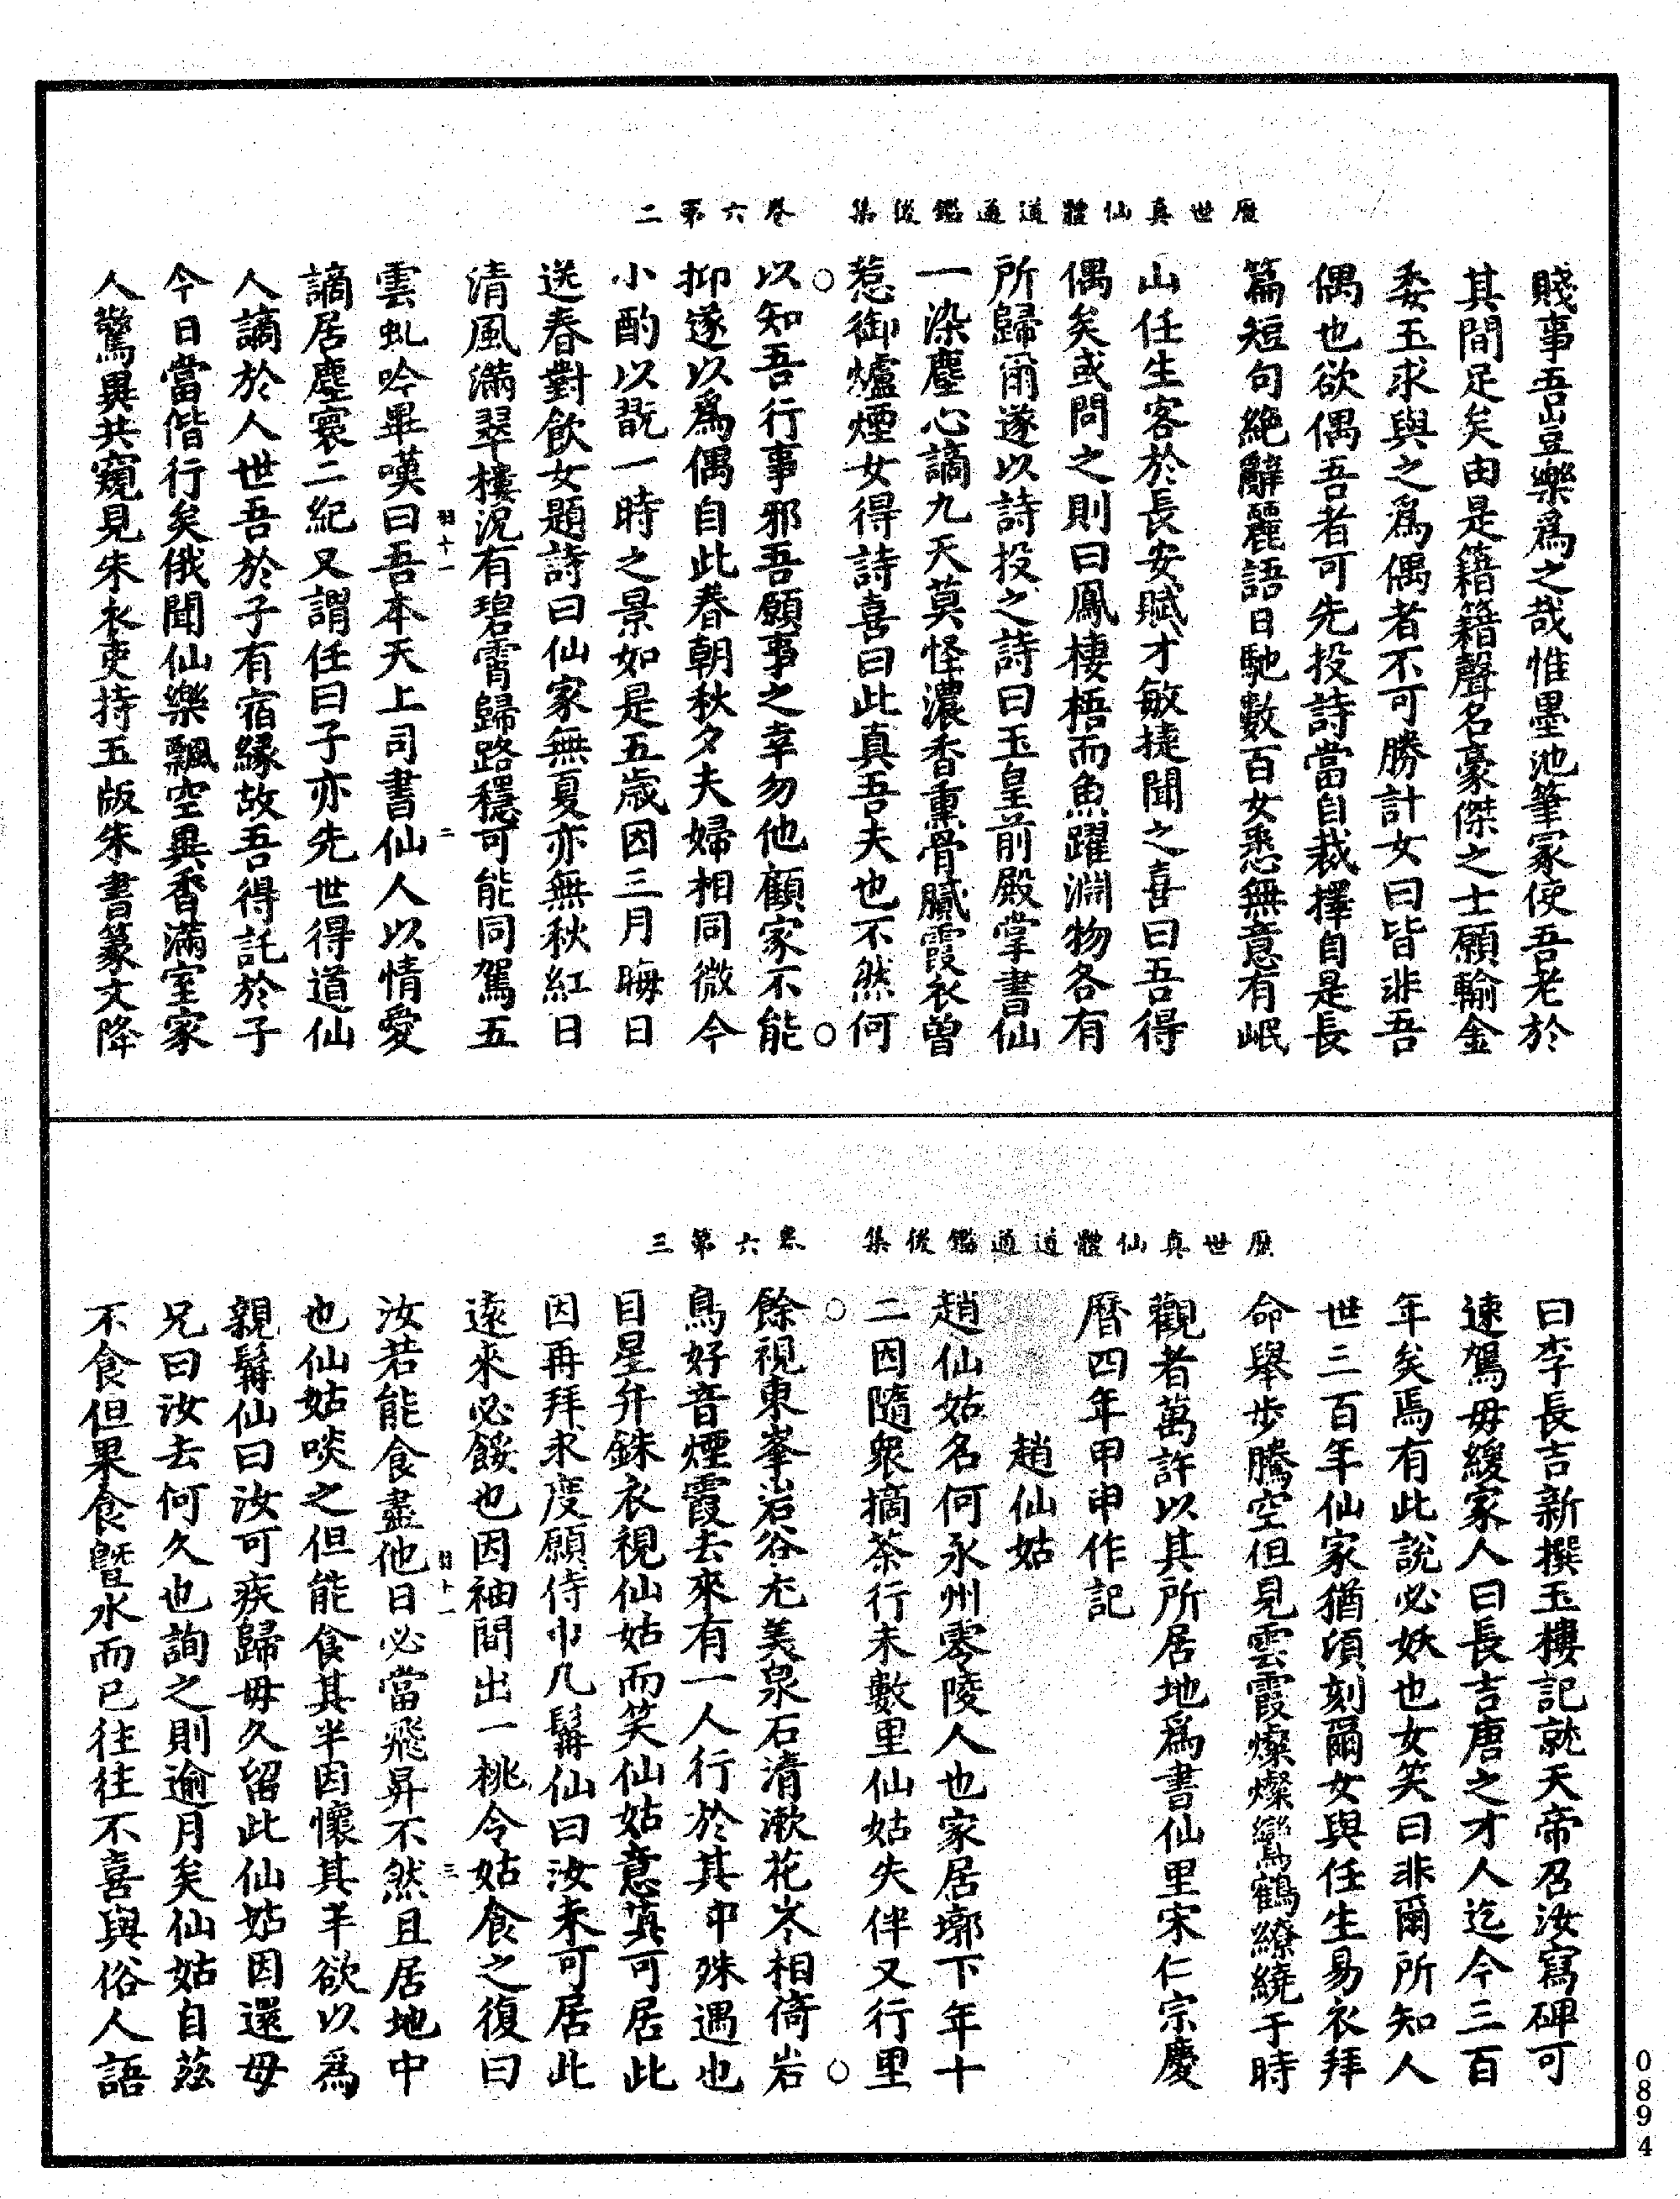 歷世真仙體道通鑑後集　卷六第二
賤事吾豈樂爲之哉惟墨池筆冢使吾老於
其間足矣由是籍籍聲名豪傑之士願輸金
委玉求與之爲偶者不可勝計女曰皆非吾
偶也欲偶吾者可先投詩當自裁擇自是長
篇短句絕辭麗語日馳數百女悉無意有岷
山任生客於長安賦才敏捷聞之喜曰吾得
偶矣或問之則曰鳳棲梧而魚躍淵物各有
所歸爾遂以詩投之詩曰玉皇前殿掌書仙
一染塵心謫九天莫怪濃香熏骨膩霞衣曾
惹御爐煙女得詩喜曰此真吾夫也不然何
以知吾行事邪吾願事之幸勿他顧家不能
抑遂以爲偶自此春朝秋夕夫婦相同微今
小酌以翫一時之景如是五歲因三月晦日
送春對飲女題詩曰仙家無夏亦無秋紅日
清風滿翠樓況有碧霄歸路穩可能同駕五
雲虬吟畢嘆曰吾本天上司書仙人以情愛
謫居塵寰二紀又謂任曰子亦先世得道仙
人謫於人世吾於子有宿緣故吾得託於子
今日當偕行矣俄聞仙樂飄空異香滿室家
人驚異共窺見朱衣吏持玉版朱書篆文降
羽十一
二
歷世真仙體道通鑑後集　卷六第三
曰李長吉新撰玉樓記就天帝召汝寫碑可
速駕毋緩家人曰長吉唐之才人迄今三百
年矣焉有此說必妖也女笑曰非爾所知人
世三百年仙家猶須刻爾女與任生易衣拜
命舉步騰空但見雲霞燦燦鸞鶴繚繞于時
觀者萬許以其所居地爲書仙里宋仁宗慶
曆四年甲申作記
趙仙姑
趙仙姑名何永州零陵人也家居墎下年十
二因隨衆摘茶行未數里仙姑失伴又行里
餘視東峯岩谷尤美泉石清漱花岑相倚岩
鳥好音煙霞去來有一人行於其中殊遇也
目星弁銖衣視仙姑而笑仙姑意真可居此
因再拜求度願侍巾几髯仙曰汝未可居此
遠來必餒也因袖間出一桃令姑食之復曰
汝若能食盡他日必當飛昇不然且居地中
也仙姑啖之但能食其半因懷其半欲以爲
親髯仙曰汝可疾歸毋久留此仙姑因還毋
兄曰汝去何久也詢之則逾月矣仙姑自茲
不食但果食暨水而已往往不喜與俗人語
羽十一
三
0894